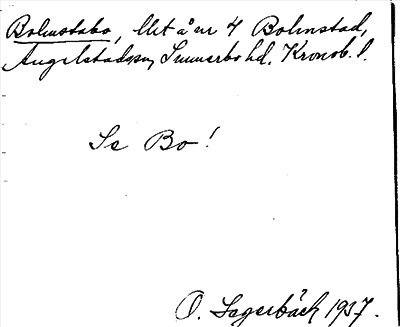 Bolmstabo, Utå nr 4 Bolmstad,
Angelstads sn, Sunnerbo hd, Kronob. l.
Se Bo!
O. Lagerbäck 1937.